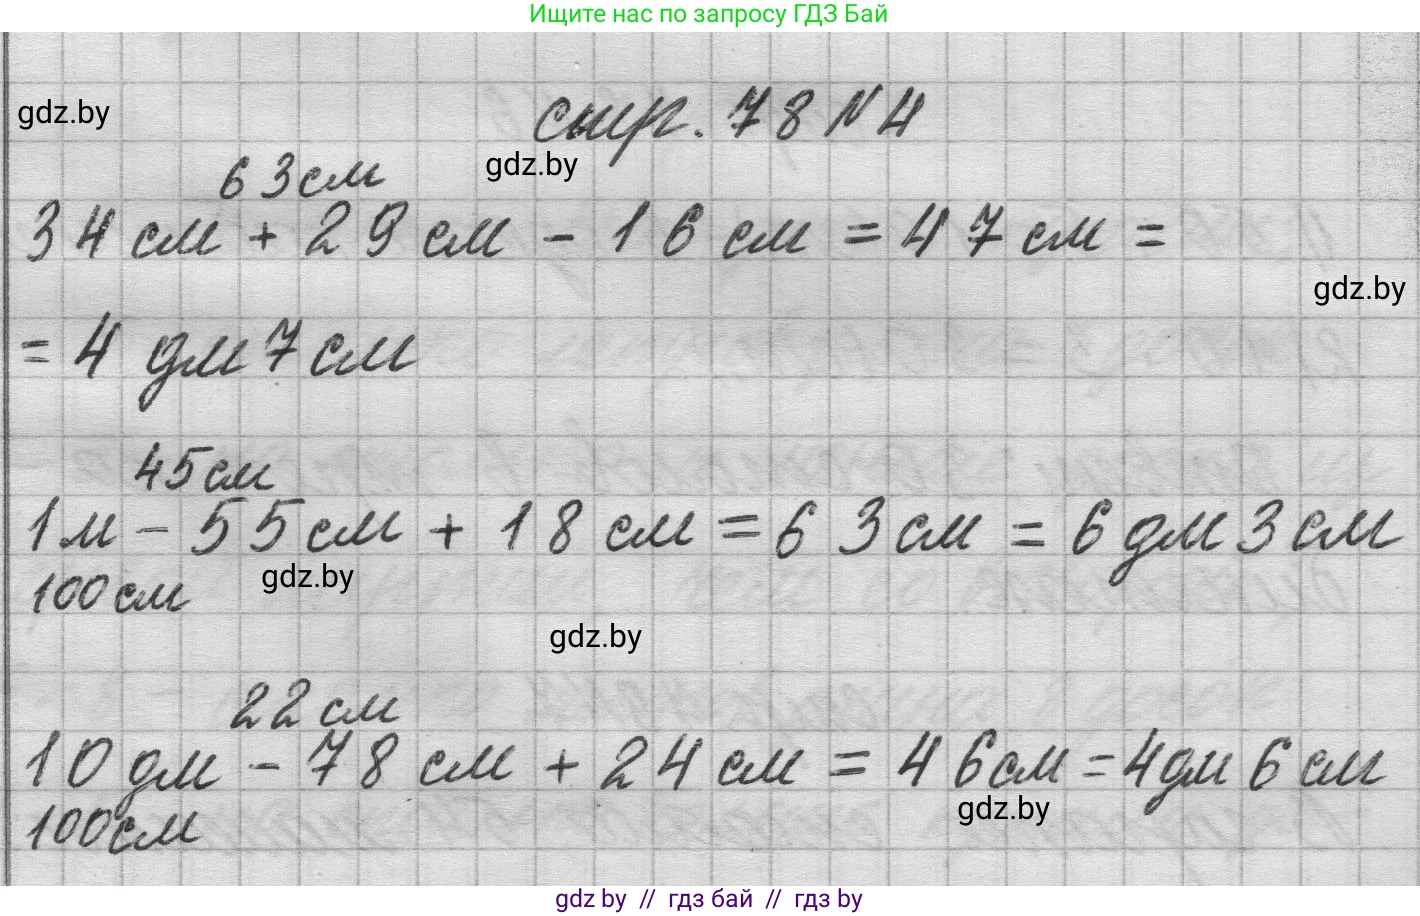 Ищите нас по запросу ГДЗ Бай
gdz.by
стр. 78 № 4
gdz.by
63см
34 см + 29 см - 16 см = 47 см =
gdz.by
= 4 дм 7 см
45 см
1 м - 55 см + 18 см = 63 см = 6 дм 3 см
100 см
gdz.by
gdz.by
22 см
10 дм - 78 см + 24 см = 46 см = 4 дм 6 см
gdz.by
100 см
gdz by // гдз бай // гдз by